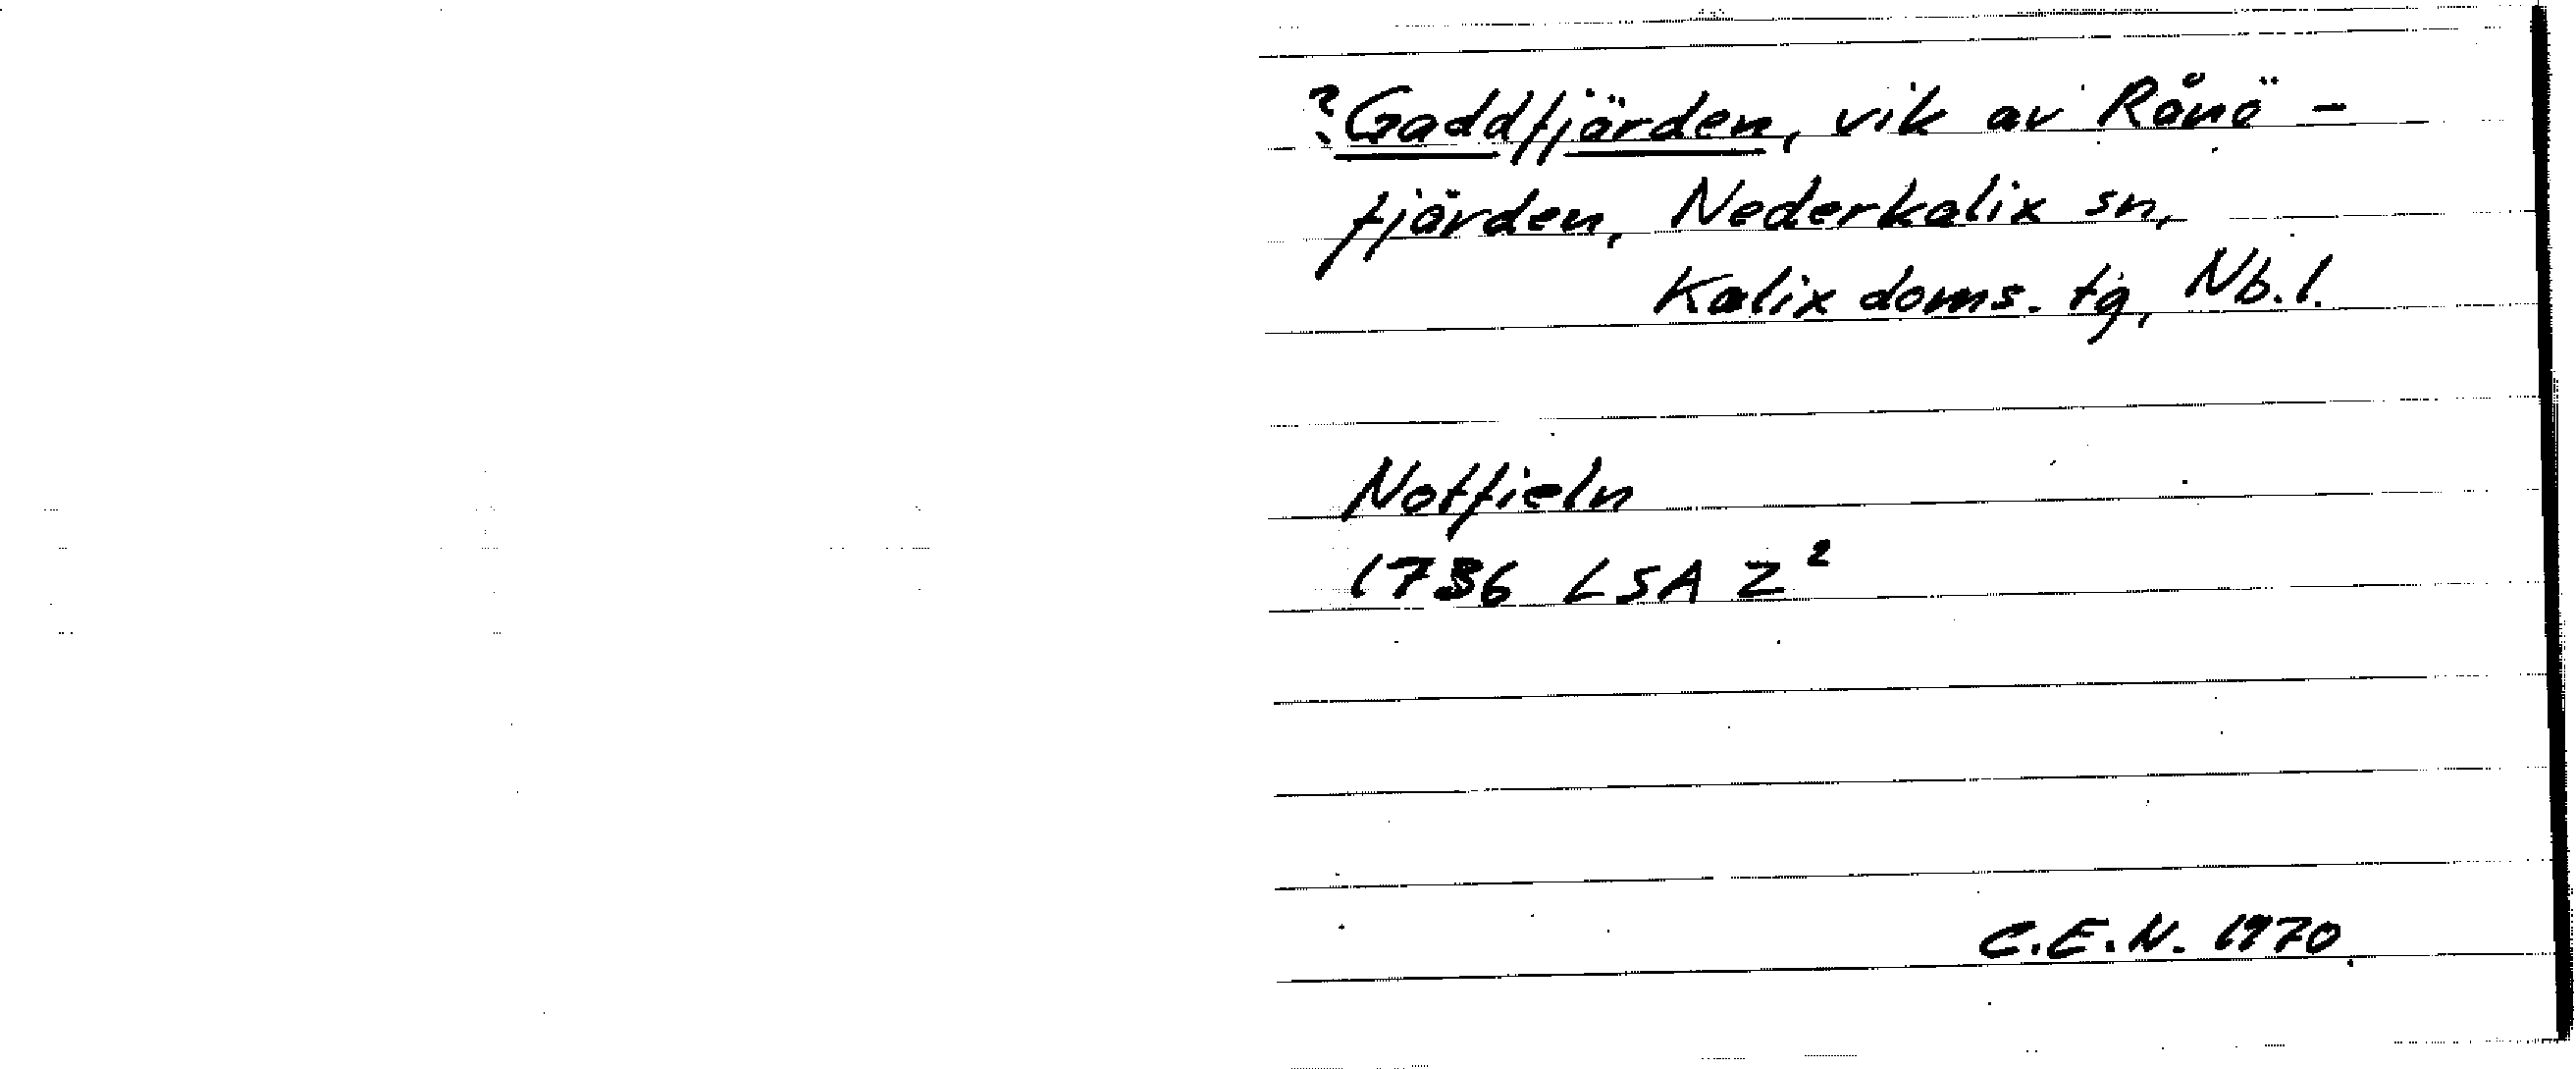 ?Gaddfjärden, vik av Rånö-
fjärden, Nederkalix sn,
Kalix doms. tg, Nb.l.
Notfieln
1736 LSA Z²
C.E.N. 1970